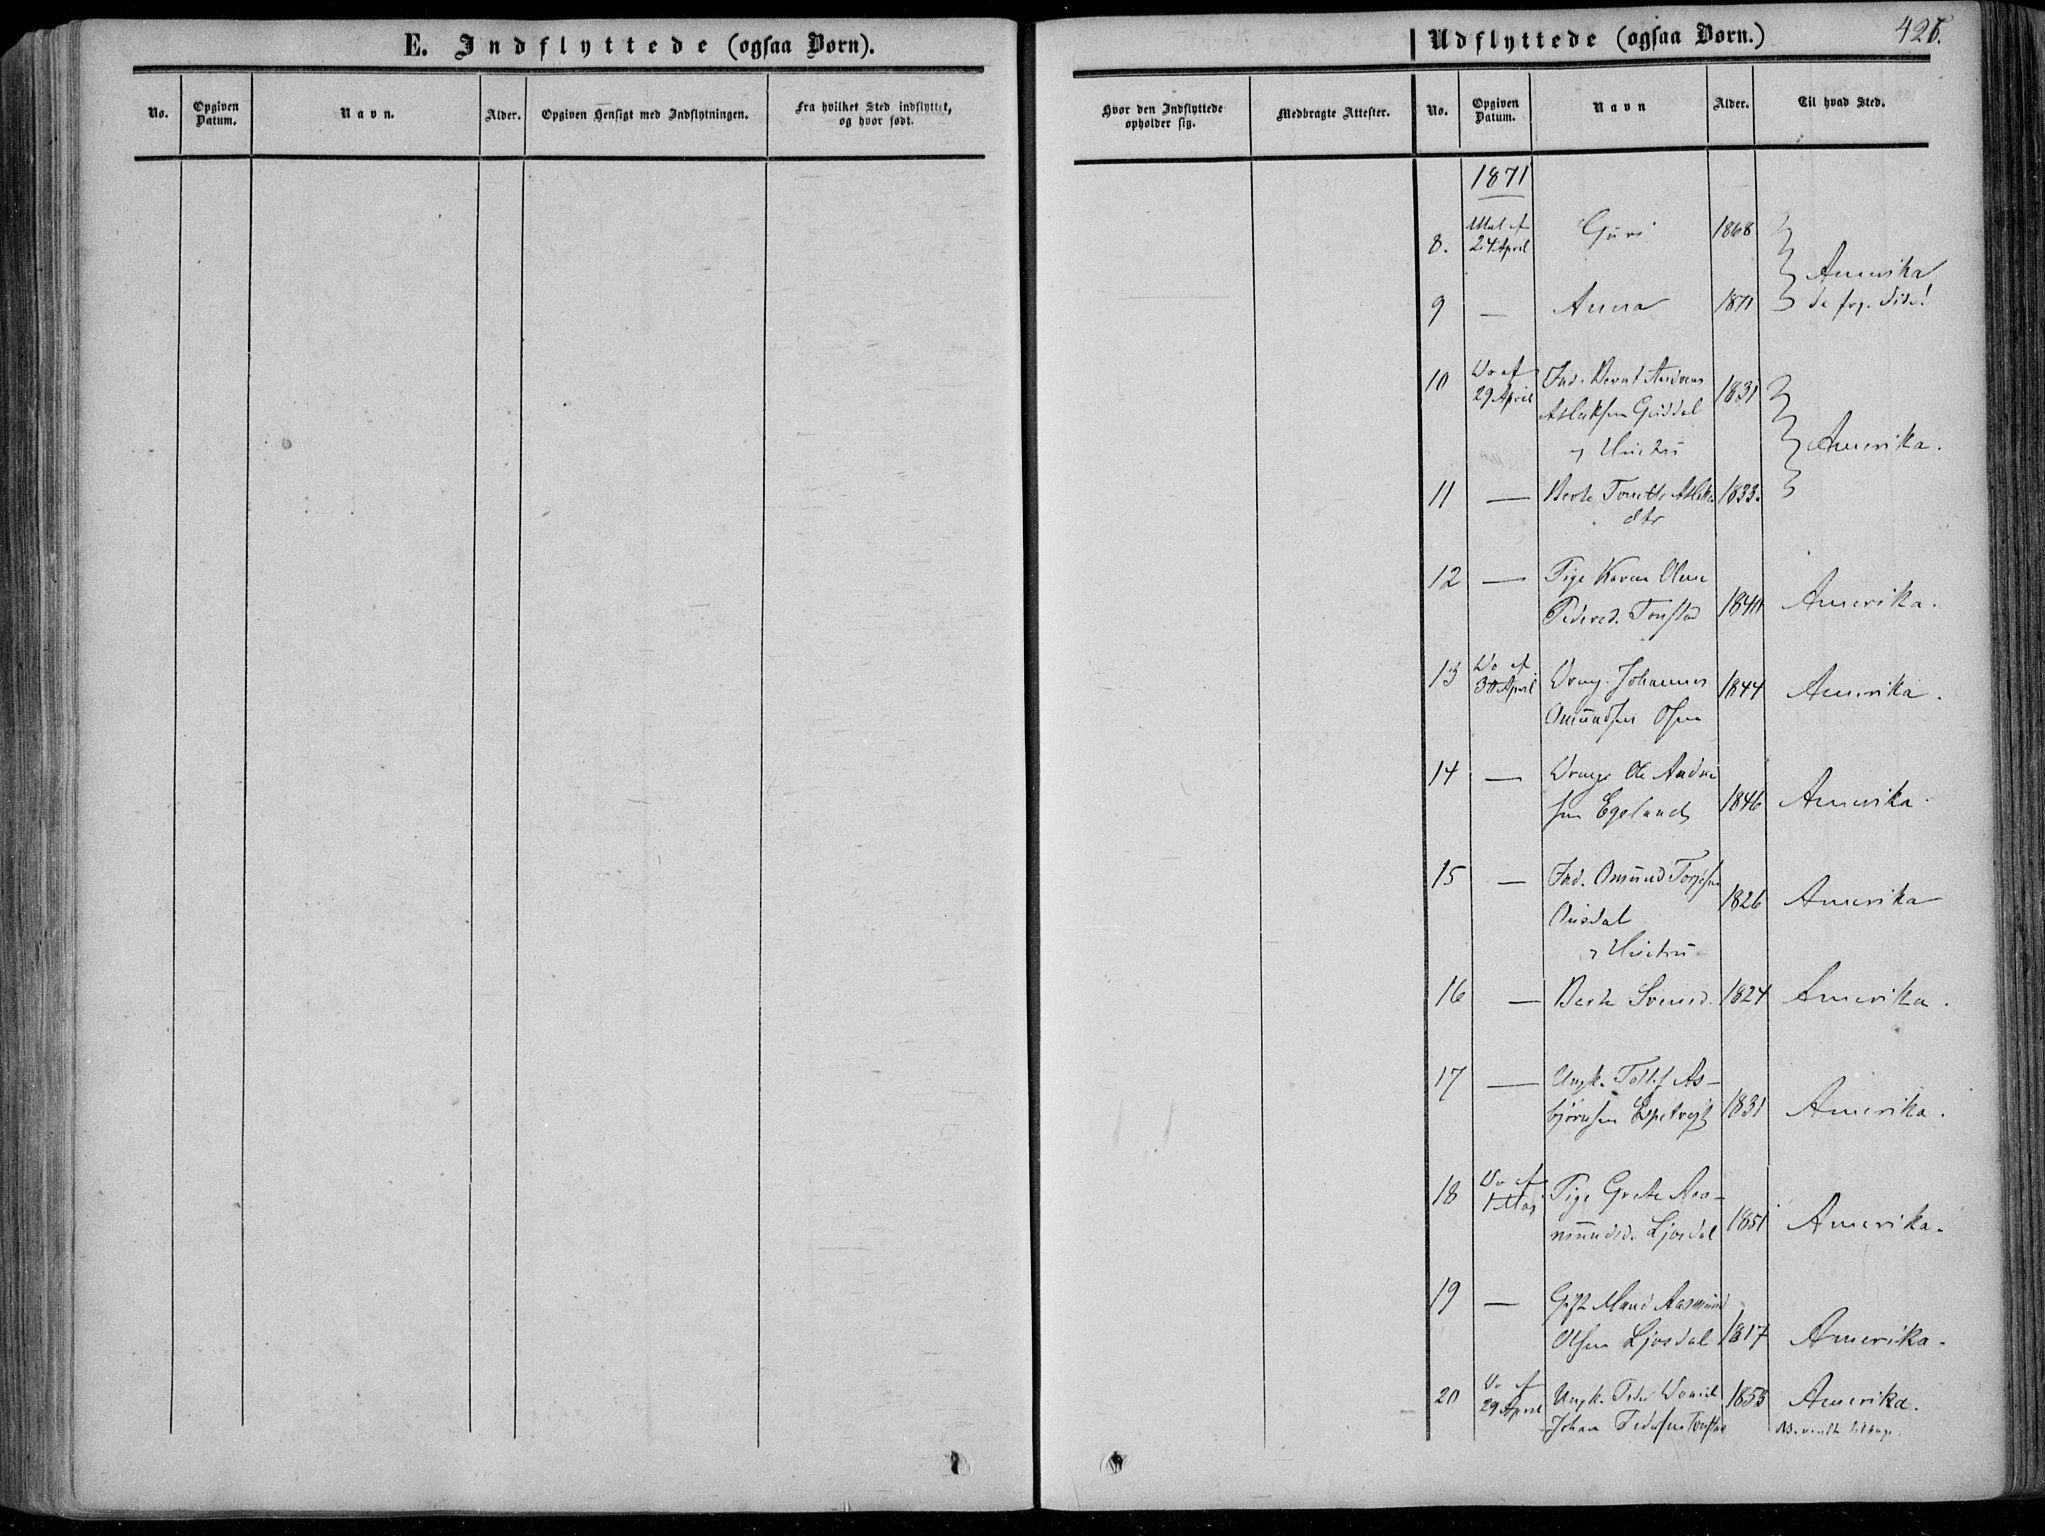 E. Indflyttede (ogsaa Børn).
No.
Opgiven Datum.
Navn.
Alder.
Opgiven Hensigt med Indflytningen.
Fra hvilket Sted indflyttet, og hvor født.
Udflyttede (ogsaa Børn.)
Hvor den Indflyttede opholder sig.
Medbragte Attester.
No.
Opgiven Datum.
Navn
Alder.
Til hvad Sted.
1871
8. 24 April Guri 1868
Amerika
9 — Anna 1871
10 Do af 29 April Ind. Bernt Andreas 1831
Aslaksen Guddal
Amerika.
Hustru
11 — Berte 1833.
dtr
12 — Pige Karen Oline
Pedersd. Tonstad Amerika.
13 Do af 30 April Dreng Johannes 1844 Amerika.
Omundsen Osen
14 — Dreng Ole Andrea
sen Egeland 1846 Amerika.
15 — Ind. Omund
Ousdal 1826 Amerika
Hustru
16 — Berte Svensd. 1824 Amerika.
17 — Ungk. Tollef As-
bjørnsen Espetveit 1831 Amerika.
18 Do af 1 Mai Pige Grete Aas-
mundsd. Ljosdal 1851 Amerika.
19 — Gift Mand Aasmund
Olsen Ljosdal 1817 Amerika.
20 Do af 29 April Ungk. Peder Daniel 1853 Amerika.
Johan Pedersen Tonstad
vendte tilbage.